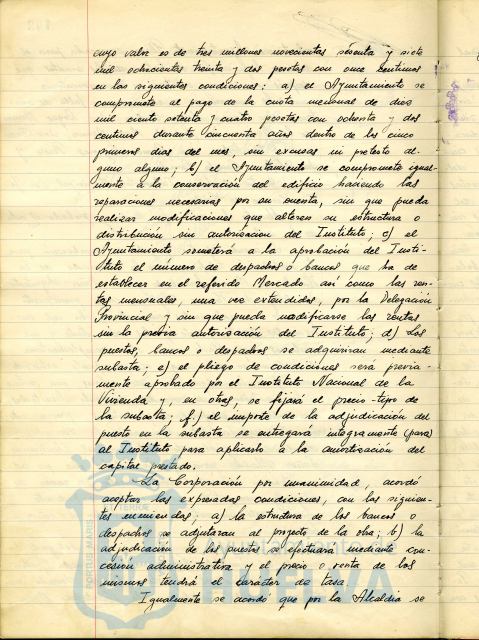 cuyo valor es de tres millones novecientas sesenta y siete
mil ochocientas treinta y dos pesetas con once centimos
en las siguientes condiciones: a) el Ayuntamiento se
compromete al pago de la cuota mensual de diez
mil ciento setenta y cuatro pesetas con ochenta y dos
centimos durante cincuenta años dentro de los cinco
primeros dias del mes, sin excusas ni pretexto al-
guno alguno; b) el Ayuntamiento se compromete igual-
mente a la conservación del edificio haciendo las
reparaciones necesarias por su cuenta, sin que pueda
realizar modificaciones que alteren su estructura o
distribución sin autorización del Instituto; c) el
Ayuntamiento someterá a la aprobación del Insti-
tuto el número de despachos o bancos, que ha de
establecer en el referido Mercado asi como las ren-
tas mensuales, una vez extendidos, por la Delegación
Provincial y sin que pueda modificarse las rentas
sin la previa autorización del Instituto; d) Los
puestos, bancos o despachos se adquiriran mediante
subasta; e) el pliego de condiciones será previa-
mente aprobado por el Instituto Nacional de la
Vivienda y, en otras, se fijará el precio-tipo de
la subasta; f) el importe de la adjudicación del
puesto en la subasta se entregará integramente (para)
al Instituto para aplicarlo a la amortización del
capital prestado.
La Corporación por unanimidad, acordó
aceptar las expresadas condiciones, con las siguien-
tes enmiendas; a) la estructura de los bancos o
despachos se adjutaran al proyecto de la obra; b) la
adjudicación de los puestos se efectuará mediante con-
cesion administrativa y el precio o renta de los
mismos tendrá el caracter de tasa.
Igualmente se acordó que por la Alcaldia se
PORTUS MARIS
Ayuntamiento
HUELVA